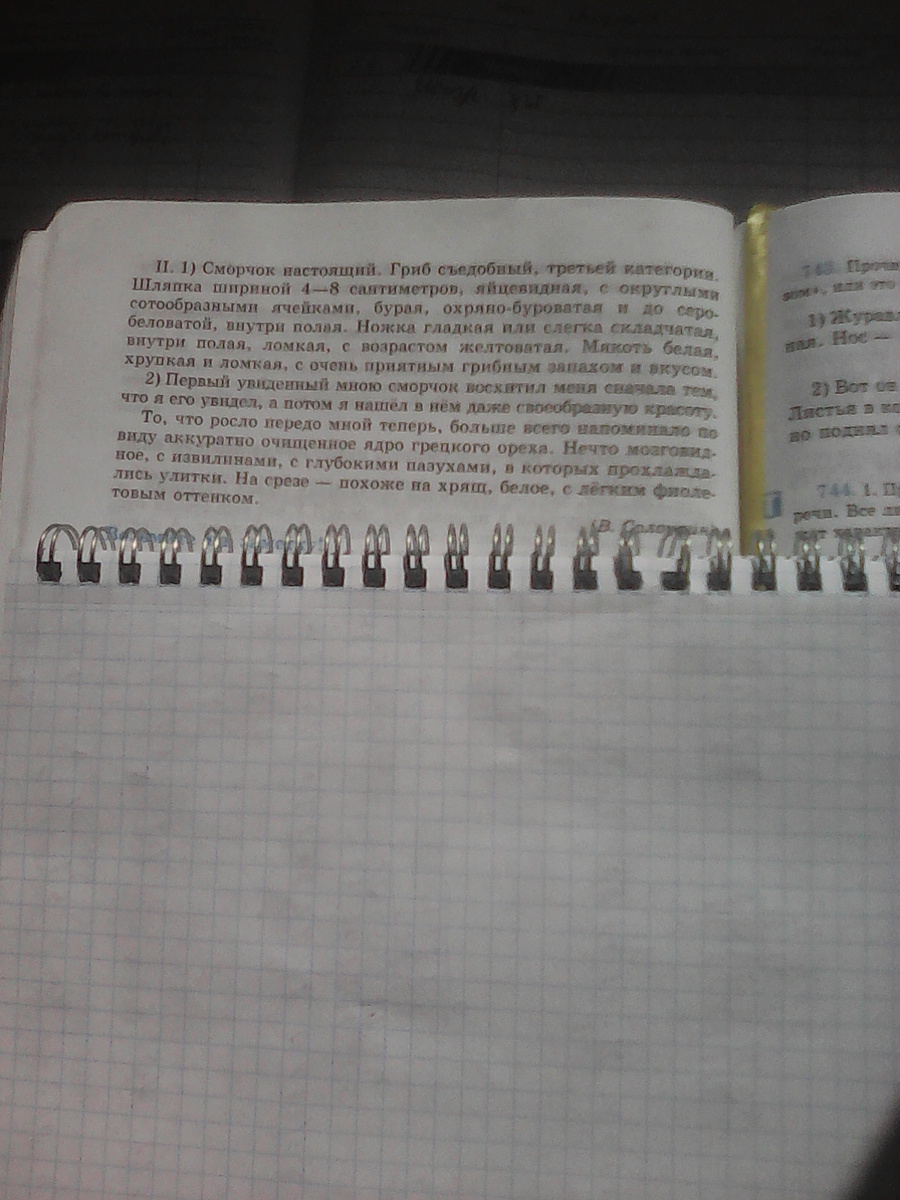 II. 1) Сморчок настоящий. Гриб съедобный, третьей категории.
Шляпка шириной 4—8 сантиметров, яйцевидная, с округлыми
сотообразными ячейками, бурая, охряно-буроватая и до серо-
беловатой, внутри полая. Ножка гладкая или слегка складчатая,
внутри полая, ломкая, с возрастом желтоватая. Мякоть белая,
хрупкая и ломкая, с очень приятным грибным запахом и вкусом.
2) Первый увиденный мною сморчок восхитил меня сначала тем,
что я его увидел, а потом я нашёл в нём даже своеобразную красоту.
То, что росло передо мной теперь, больше всего напоминало по
виду аккуратно очищенное ядро грецкого ореха. Нечто мозговид-
ное, с извилинами, с глубокими пазухами, в которых прохлажда-
лись улитки. На срезе — похоже на хрящ, белое, с лёгким фиоле-
товым оттенком.
(В.
743. Прочи
или это
1) Журавл
ная. Нос —
2) Вот он
Листья в ко
но поднял
744. 1. П
речи. Все